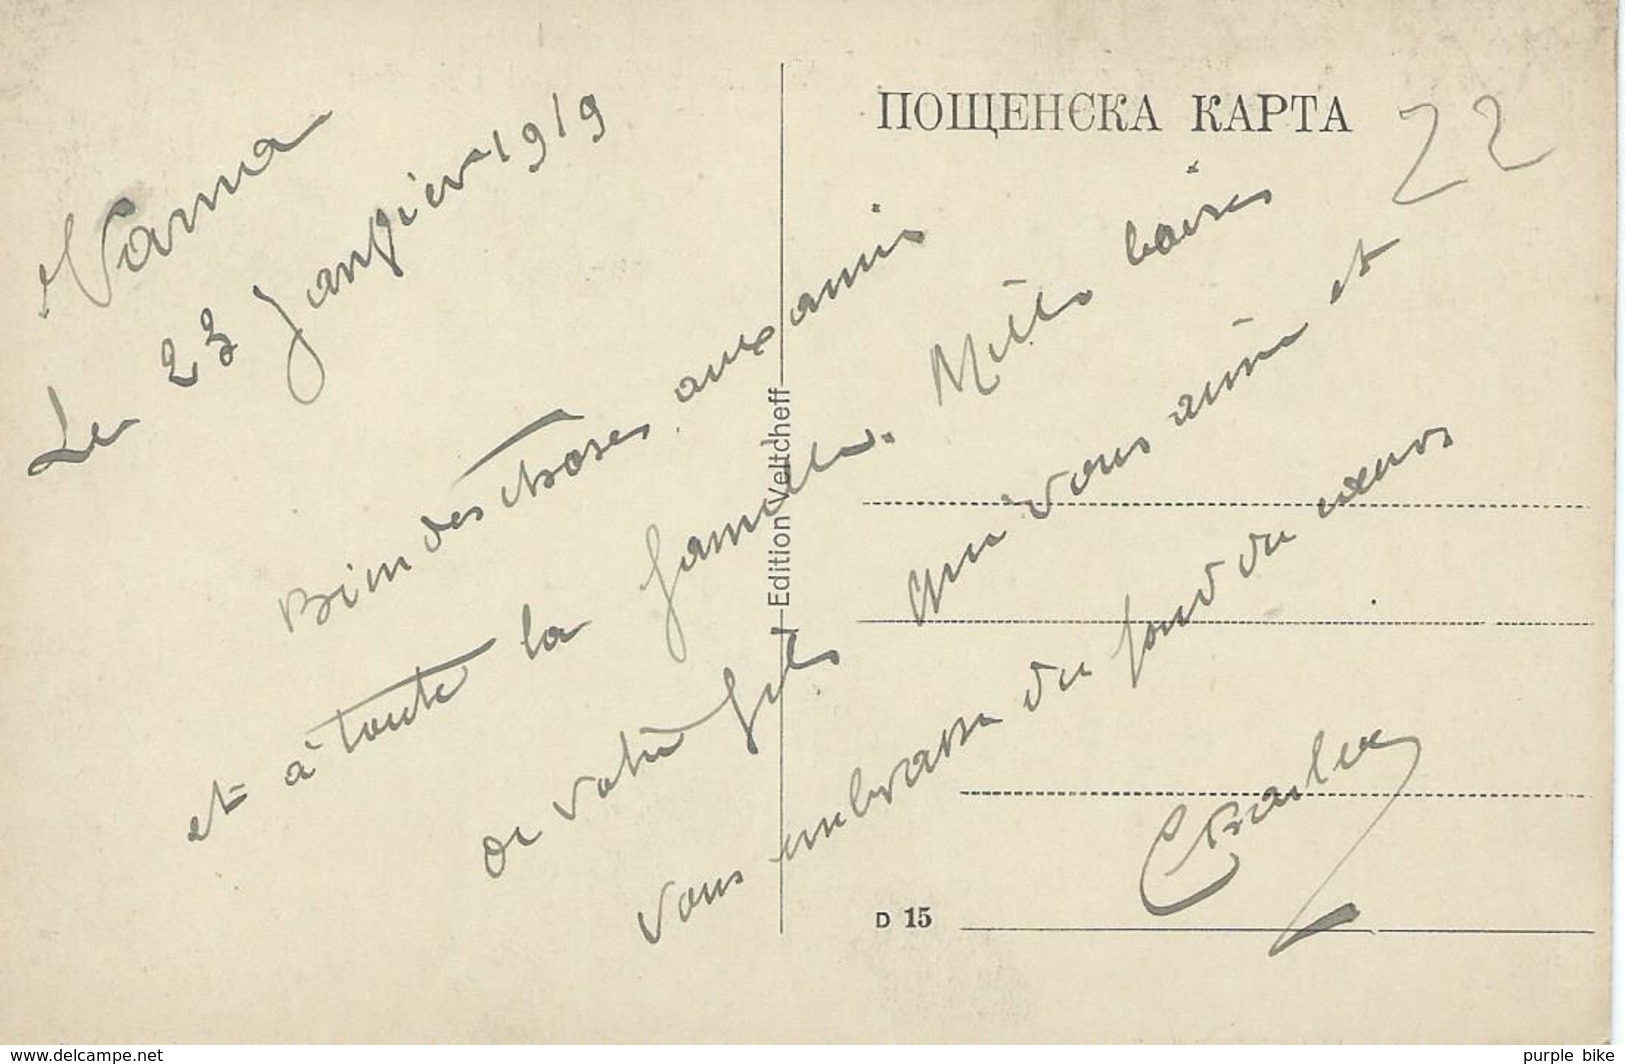 ПОЩЕНСКА КАРТА
22
Varna
Le 23 Janvier 1919
Bien des choses aux amis
et à toute la famille. Mille baises
de votre fils qui vous aime et
vous embrasse du fond du cœurs
Charles
Edition Veltcheff
D 15
www.delcampe.net
purple bike